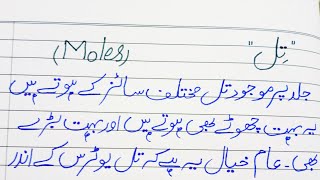 "تِل"
(Moles)
جلد پر موجود تل مختلف سائز کے ہوتے ہیں
یہ بہت چھوٹے بھی ہوتے ہیں اور بہت بڑے
بھی۔ عام خیال یہ ہے کہ تل یوٹرس کے اندر